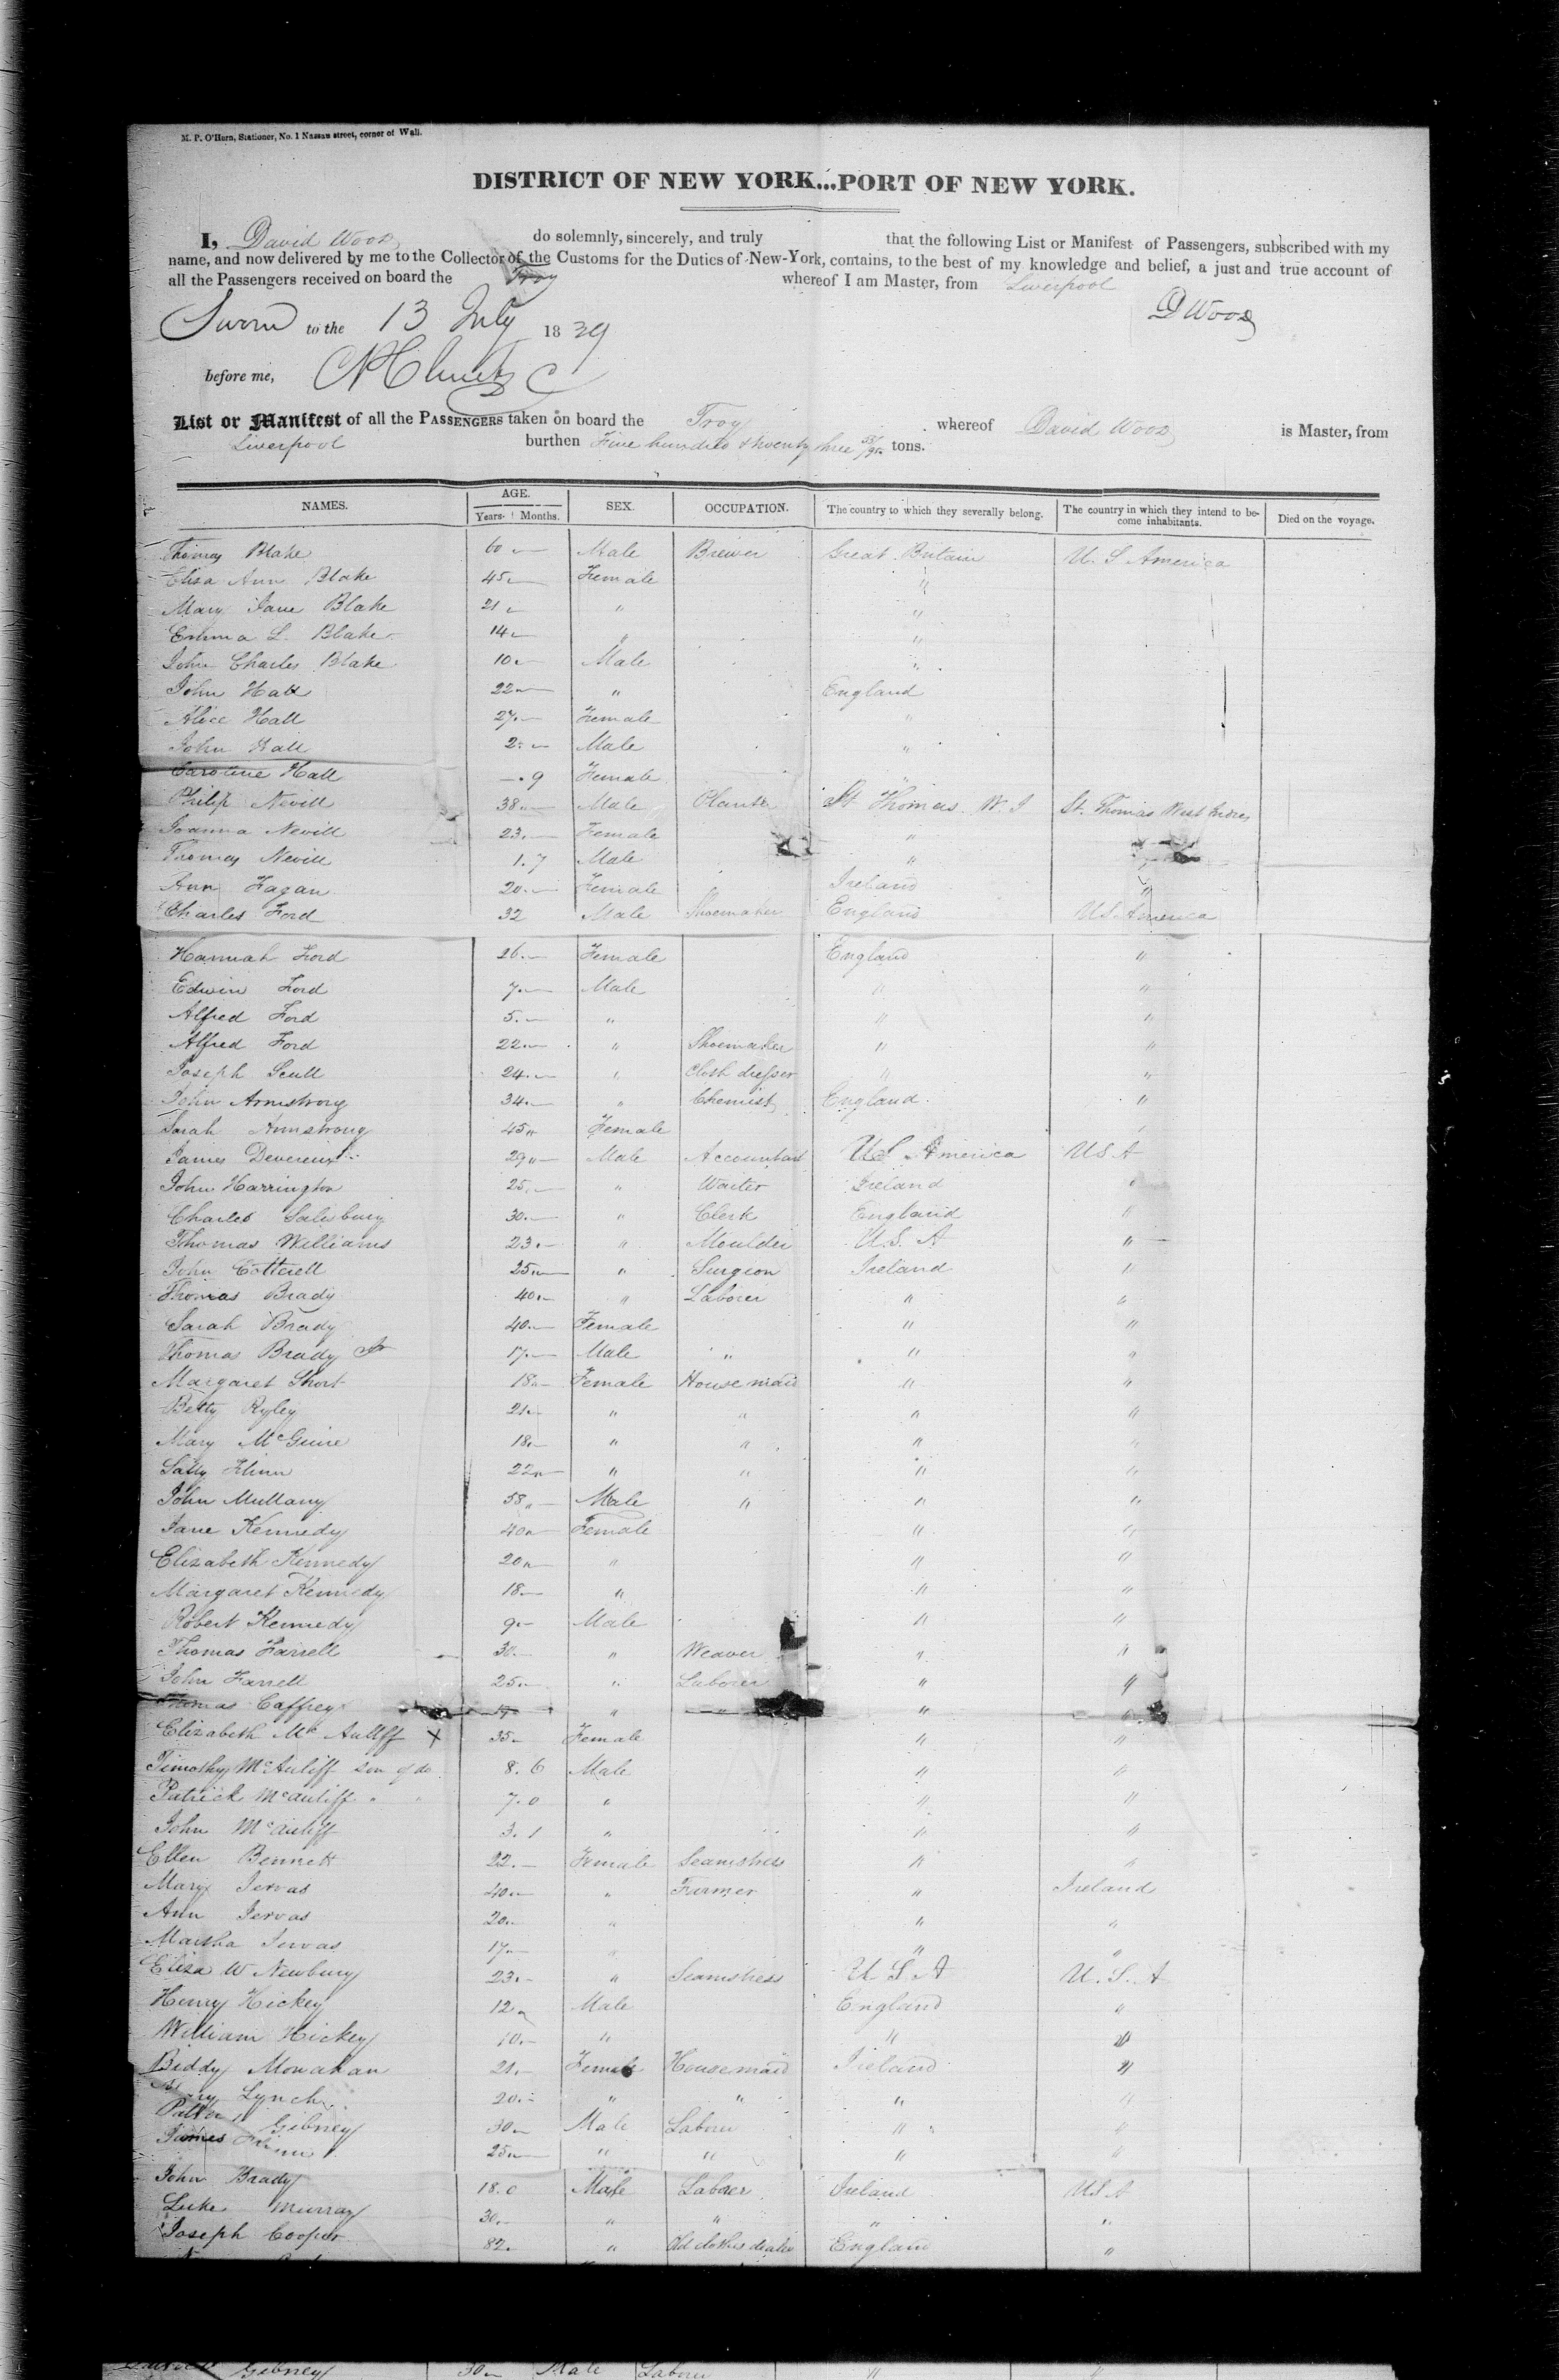 M. P. O'Hern, Stationer, No. 1 Nassau street, corner of Wall.
DISTRICT OF NEW YORK...PORT OF NEW YORK.
I, David Wood do solemnly, sincerely, and truly that the following List or Manifest of Passengers, subscribed with my
name, and now delivered by me to the Collector of the Customs for the Duties of New-York, contains, to the best of my knowledge and belief, a just and true account of
all the Passengers received on board the Troy whereof I am Master, from Liverpool
D Wood
Sworn to the 13 July 1839
before me,
List or Manifest of all the PASSENGERS taken on board the Troy whereof David Wood is Master, from
Liverpool burthen Five hundred & twenty three tons.
NAMES. AGE. Years. Months. SEX. OCCUPATION. The country to which they severally belong. The country in which they intend to become inhabitants. Died on the voyage.
Thomas Blake 60 Male Brewer Great Britain U. S America
Eliza Ann Blake 45 Female "
Mary Jane Blake 21 " "
Emma L. Blake 14 " "
John Charles Blake 10 Male "
John Hall 22 " England
Alice Hall 27 Female "
John Hall 2 Male "
Caroline Hall 9 Female "
Philip Nevill 38 Male Planter St Thomas W. I St. Thomas West Indies
Joanna Nevill 23 Female "
Thomas Nevill 1. 7 Male "
Ann Fagan 20 Female Ireland "
Charles Ford 32 Male Shoemaker England US America
Hannah Ford 26 Female England "
Edwin Ford 7 Male " "
Alfred Ford 5 " " "
Alfred Ford 22 " Shoemaker " "
Joseph Scull 24 " Cloth dresser " "
John Armstrong 34 " Chemist England "
Sarah Armstrong 45 Female "
James Devereux 29 Male Accountant US America USA
John Harrington 25 " Waiter Ireland "
Charles Salesbury 30 " Clerk England "
Thomas Williams 23 " Moulder U.S. A "
John Cotterell 25 " Surgeon Ireland "
Thomas Brady 40 " Laborer " "
Sarah Brady 40 Female " "
Thomas Brady Jr 17 Male " " "
Margaret Short 18 Female House maid " "
Betty Ryley 21 " " " "
Mary McGuire 18 " " " "
Sally Flinn 22 " " " "
John Mullany 58 Male " " "
Jane Kennedy 40 Female " "
Elizabeth Kennedy 20 " " "
Margaret Kennedy 18 " " "
Robert Kennedy 9 Male " "
Thomas Farrell 30 " Weaver " "
John Farrell 25 " Laborer " "
Thomas Caffrey " " " "
Elizabeth Mc Auliff X 35 Female " "
Timothy McAuliff son of do 8. 6 Male " "
Patrick McAuliff " " 7. 0 " " "
John McAuliff 3. 1 " " "
Ellen Bennett 22 Female Seamstress " "
Mary Jervas 40 " Farmer " Ireland
Ann Jervas 20 " " "
Martha Jervas 17 " " "
Eliza W Newbury 23 " Seamstress U S A U. S. A
Henry Hickey 12 Male England "
William Hickey 10 " " "
Biddy Monahan 21 Female House maid Ireland "
Mary Lynch 20 " " " "
Gibney 30 Male Laborer " "
James 25 " " " "
John Brady 18. 0 Male Laborer Ireland USA
Luke Murray 30 " " " "
Joseph Cooper 82 " Old clothes dealer England "
Gibney 30 Male Laborer " "